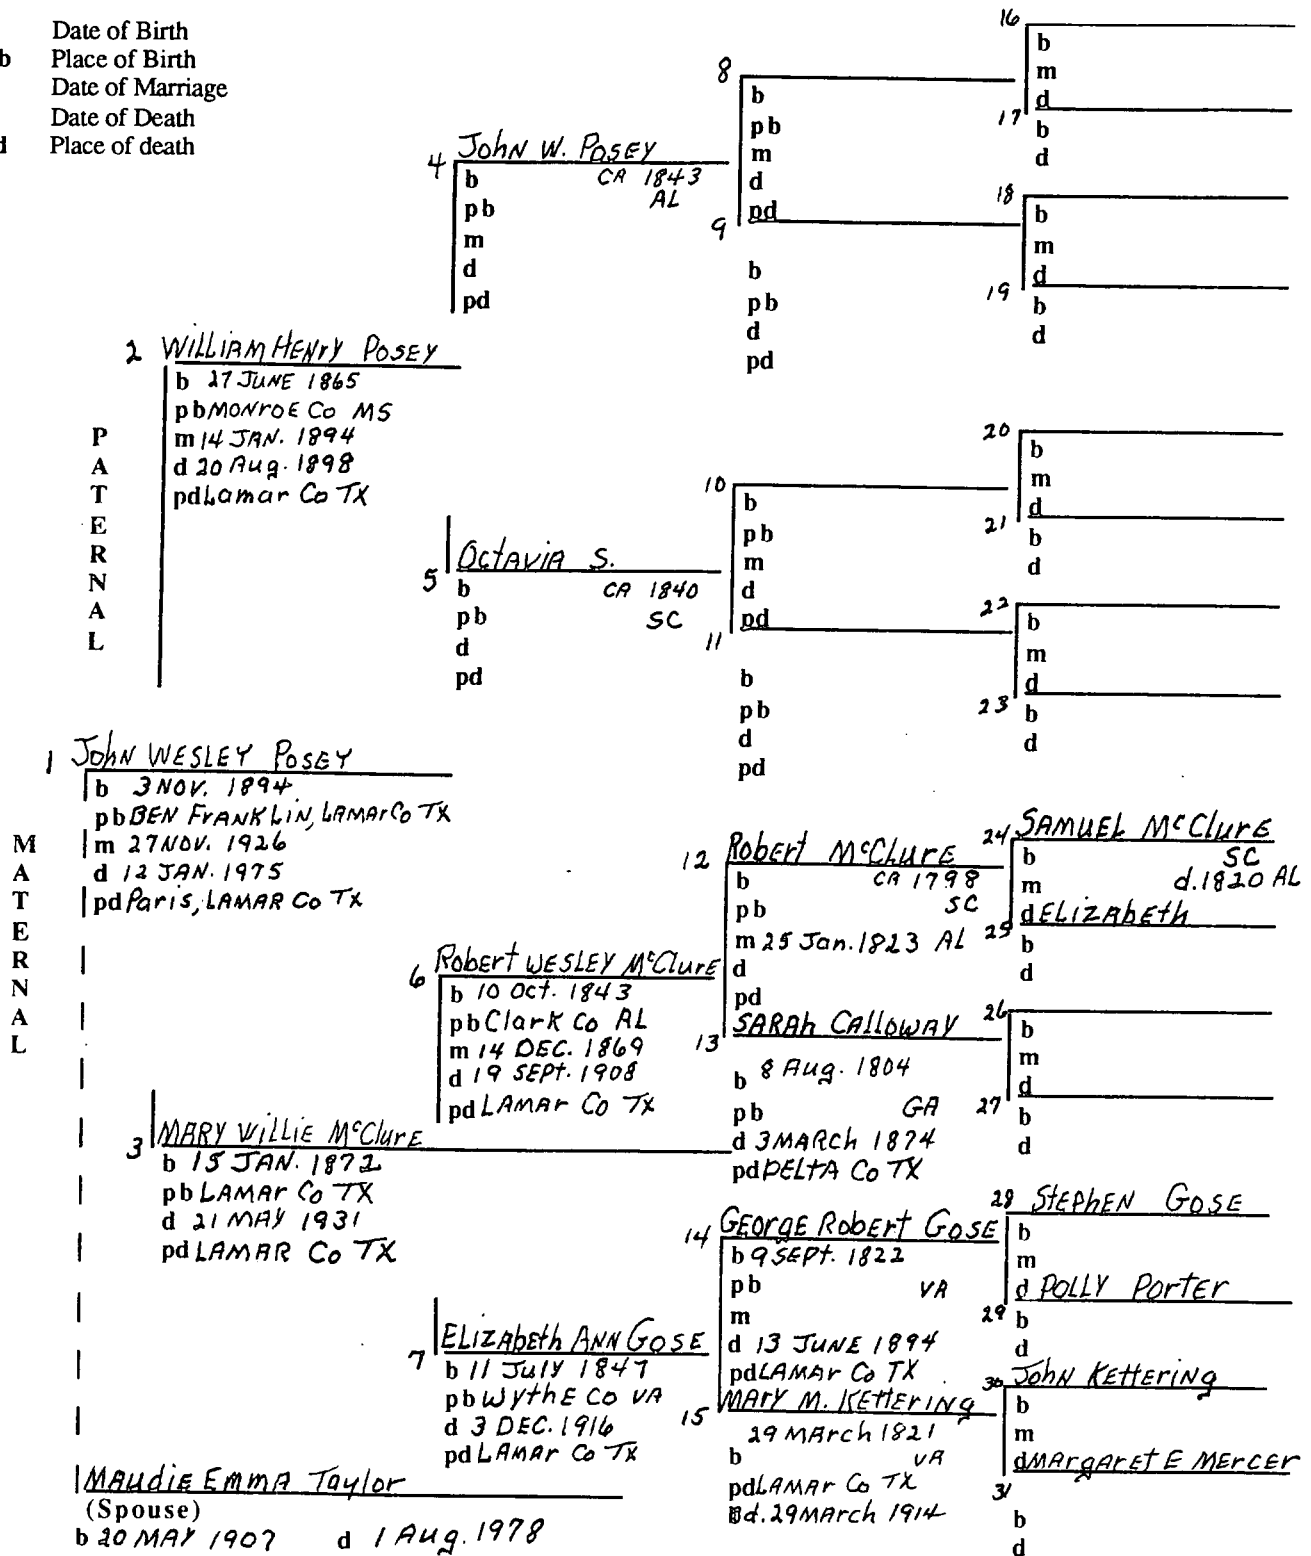 Date of Birth
b Place of Birth
Date of Marriage
Date of Death
d Place of death
PATERNAL
MATERNAL
1 John WESLEY POSEY
b 3 NOV. 1894
pb BEN FRANKLIN, LAMAR Co TX
m 27 NOV. 1926
d 12 JAN. 1975
pd Paris, LAMAR Co TX
MAUDIE EMMA Taylor
(Spouse)
b 20 MAY 1907 d 1 Aug. 1978
2 WILLIAM HENRY POSEY
b 27 JUNE 1865
pb MONROE Co MS
m 14 JAN. 1894
d 20 Aug. 1898
pd Lamar Co TX
3 MARY WILLIE McClurE
b 15 JAN. 1872
pb LAMAR Co TX
d 21 MAY 1931
pd LAMAR Co TX
4 John W. POSEY
b CA 1843
pb AL
m
d
pd
5 OCTAVIA S.
b CA 1840
pb SC
d
pd
6 Robert WESLEY McClurE
b 10 Oct. 1843
pb Clark Co AL
m 14 DEC. 1869
d 19 SEPT. 1908
pd LAMAR Co TX
7 ELIZABETH ANN GOSE
b 11 July 1847
pb WYTHE Co VA
d 3 DEC. 1916
pd LAMAR Co TX
8
b
pb
m
d
pd
9
b
pb
d
pd
10
b
pb
m
d
pd
11
b
pb
d
pd
12 Robert McClurE
b CA 1798
pb SC
m 25 Jan. 1823 AL
d
pd
13 SARAH CALLOWAY
b 8 Aug. 1804
pb GA
d 3 MARCH 1874
pd DELTA Co TX
14 GEORGE Robert GOSE
b 9 SEPT. 1822
pb VA
m
d 13 JUNE 1894
pd LAMAR Co TX
15 MARY M. KETTERING
29 MARCH 1821
b VA
pd LAMAR Co TX
d. 29 MARCH 1914
16
b
m
d
17
b
d
18
b
m
d
19
b
d
20
b
m
d
21
b
d
22
b
m
d
23
b
d
24 SAMUEL McClurE
b SC
m d. 1820 AL
d
25 ELIZABETH
b
d
26
b
m
d
27
b
d
28 STEPHEN GOSE
b
m
d
29 POLLY PORTER
b
d
30 John KETTERING
b
m
d
31 MARGARET E MERCER
b
d